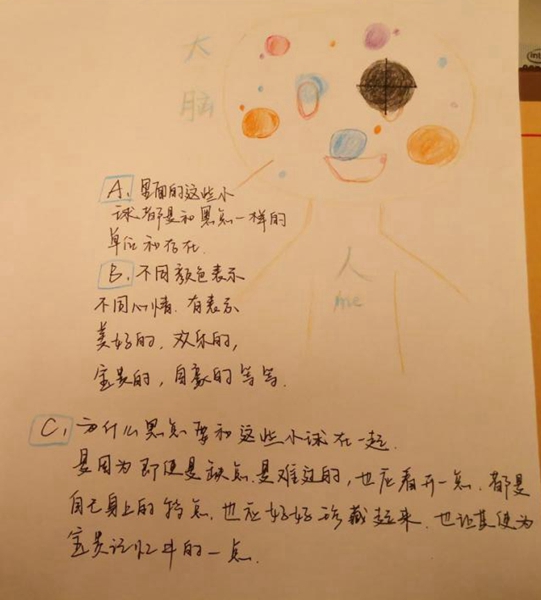 大
脑
A. 里面的这些小
球都是和黑点一样的
单位和存在.
B. 不同颜色表示
不同心情. 有表示
美好的, 欢乐的,
宝贵的, 自豪的等等.
人
me
C. 为什么黑点要和这些小球在一起.
是因为即使是缺点是难过的, 也应看开一点. 都是
自己身上的特点, 也应好好珍藏起来. 也让其便为
宝贵记忆中的一点.